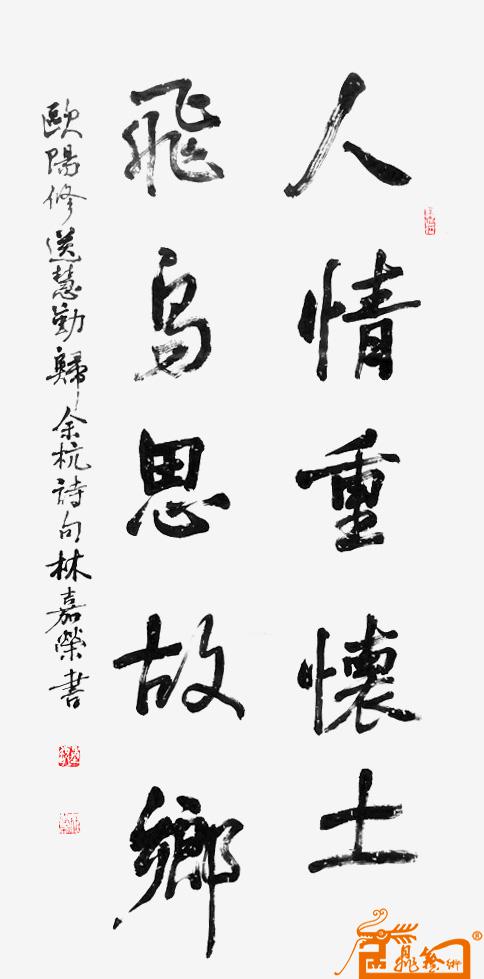 人情重懷土
飛鳥思故鄉
歐陽修送慧勤歸余杭詩句林嘉榮書